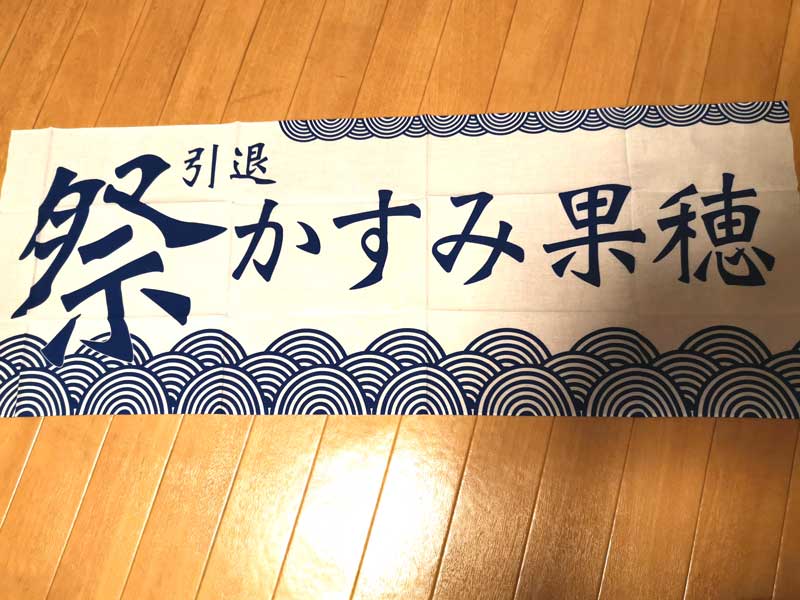 祭
引退
かすみ果穂